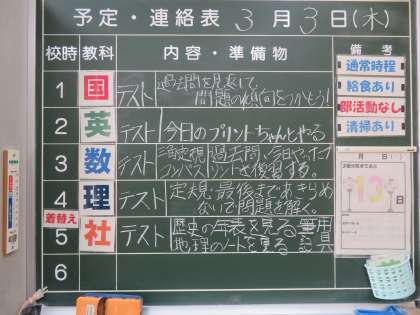 予定・連絡表 3月3日(木)
校時 教科 内容・準備物 備考
1 国 テスト 過去問を見返して、
問題の傾向をつかもう!
2 英 テスト 今日のプリントちゃんとやる
3 数 テスト 過去問、今日やった
コンパスプリントを復習する。
4 理 テスト 定規・最後まであきらめ
ないで問題を解く。
着替え
5 社 テスト 歴史の年表を見る 筆用
地理のノートを見る 記具
6
通常時程
給食あり
部活動なし
清掃あり
月 日( )
13日